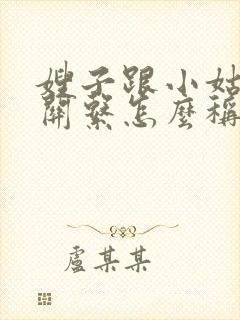 嫂子跟小姑
關繫怎麼稱
盧某某